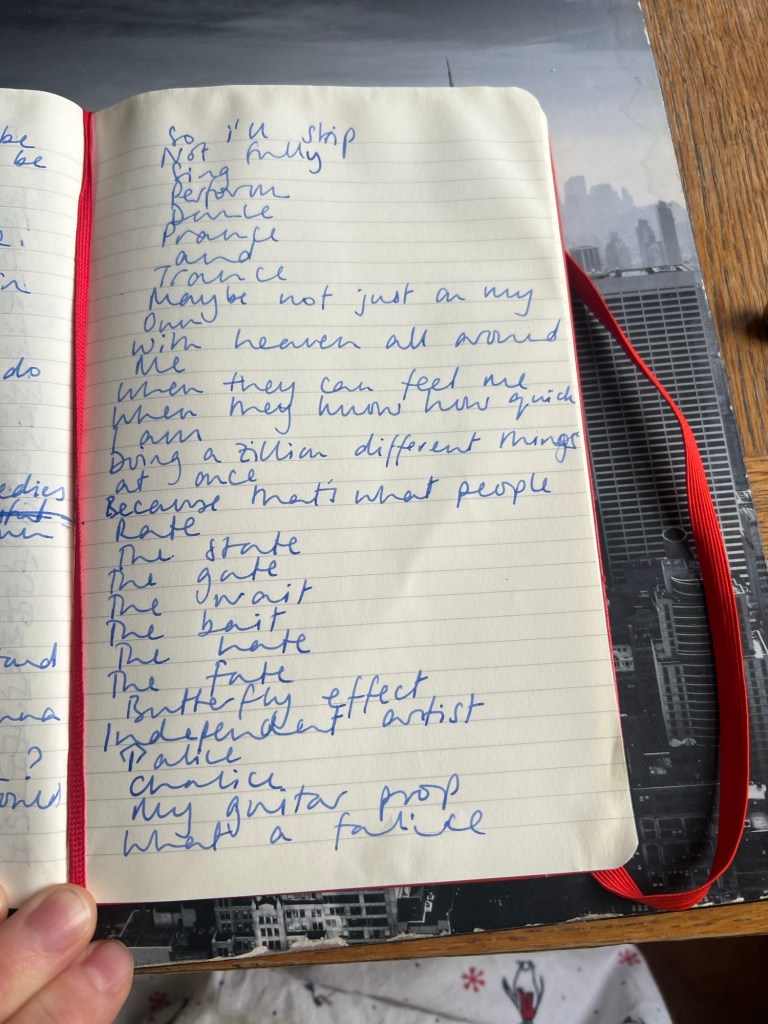 be
be
do
edies
tand
nna
?
ould
So i'll
Not fully
Sing
Perform
Dance
Prance
and
Trance
Maybe not just on my
Own
With heaven all around
Me
When they can feel me
When they know how quick
I am
Doing a zillion different things
at once
Because that's what people
Rate
The state
The gate
The wait
The bait
The hate
The fate
Butterfly effect
Independent artist
Chalice
My guitar prop
What a